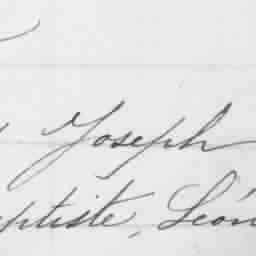 Joseph
eptiste, Léon